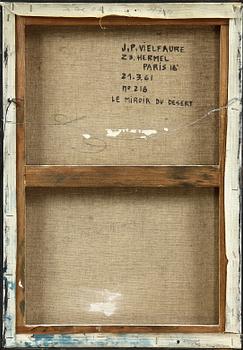 J.P. VIELFAURE
23. HERMEL
PARIS 18ᵉ
21.3.61
nº 218
LE MIROIR DU DESERT